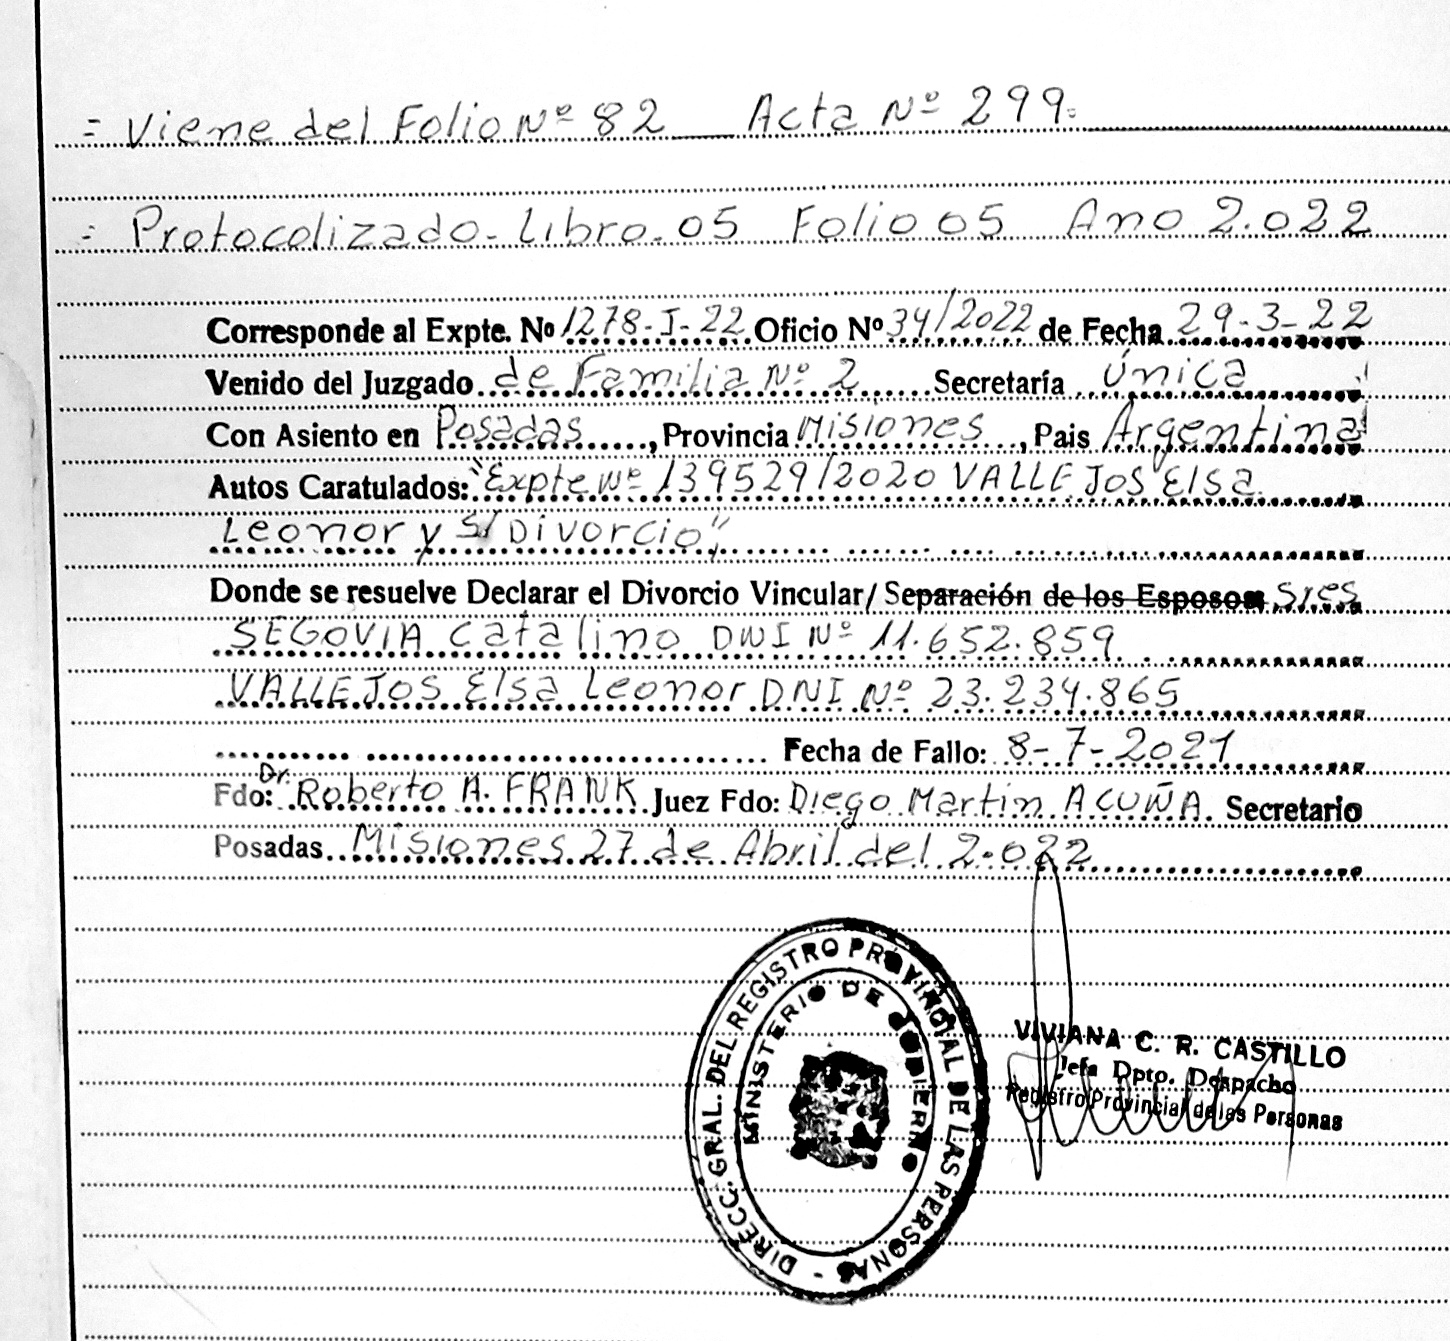 = Viene del Folio Nº 82 Acta Nº 299=
= Protocolizado- Libro- 05 Folio 05 Ano 2.022
Corresponde al Expte. Nº 1278-I-22 Oficio Nº 34/2022 de Fecha 29-3-22
Venido del Juzgado de Familia Nº 2 Secretaría Única
Con Asiento en Posadas, Provincia Misiones, Pais Argentina
Autos Caratulados: "Expte Nº 139529/2020 VALLEJOS Elsa
Leonor y S/ Divorcio"
Donde se resuelve Declarar el Divorcio Vincular/ Separación de los Esposos Sres
SEGOVIA Catalino DNI Nº 11.652.859
VALLEJOS Elsa Leonor DNI Nº 23.234.865
Fecha de Fallo: 8-7-2021
Fdo: Dr. Roberto A. FRANK Juez Fdo: Diego Martin ACUÑA. Secretario
Posadas Misiones 27 de Abril del 2.022
DIRECC. GRAL. DEL REGISTRO PROVINCIAL DE LAS PERSONAS -
MINISTERIO DE GOBIERNO
VIVIANA C. R. CASTILLO
Jefa Dpto. Despacho
Registro Provincial de las Personas